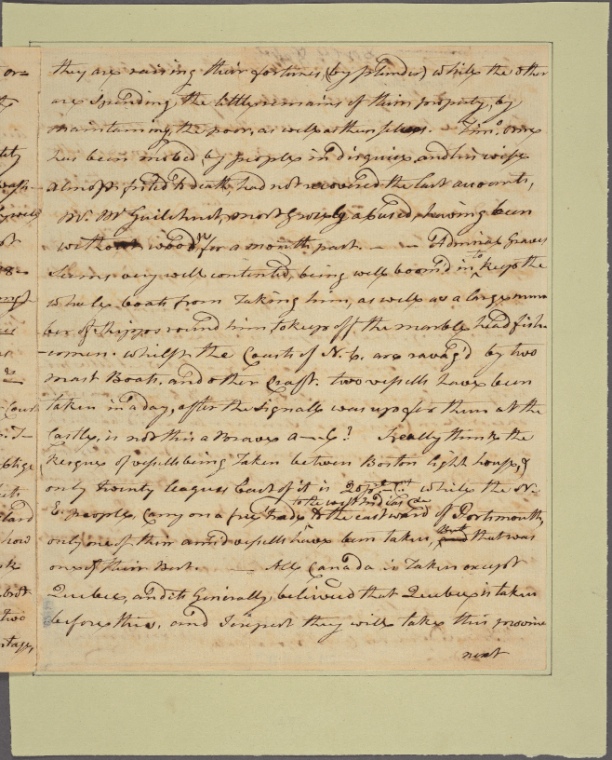 they are raising their fortunes (by plunder) while the other
are Spending the little remains of their property, by
maintaining the poor, as well as themselves. Timo.
has been mobed by people in disguise, and his wife
almost frited to death, had not recovered the last accounts,
Mr. Mc Guilchrist, most grosely abused, having been
without wood for a month past. — Admiral Graves
Seems very well contented, being well boom'd in, to keep the
whale boats from Taking him, as well as a large num
ber of Shipps round him to keep off the marble head fish
women. whilst the Coasts of N. E. are ravag'd by two
mast Boats, and other Craft. two vessells have been
taken in a day, after the Signall was up for them at the
Castle, is not this a Brave A——l? I really think the
of vessells being Taken between Boston light house, &
only twenty leagues East of it is while the N.
E. people, Carry on a free trade to the west Indias &c to the eastward of Portsmouth,
only one of their armed vessells have been taken, that was
one of their Best. — All Canada is Taken except
Quebec, and its Generally believed that Quebec is taken
before this, and I expect they will take this provine
next
or
the
-Court
obliges
land
how
not
two